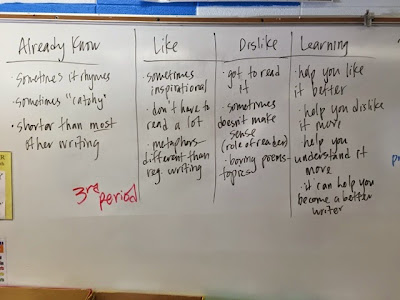 Already Know
· sometimes it rhymes
· sometimes "catchy"
· shorter than most
other writing
Like
· sometimes
inspirational
· don't have to
read a lot
· metaphors-
different than
reg. writing
Dislike
· got to read
it
· sometimes
doesn't make
sense
(role of reader)
· boring poems-
topics
Learning
· help you like
it better
· help you dislike
it more
· help you
understand it
more
· it can help you
become a better
writer
3rd
period